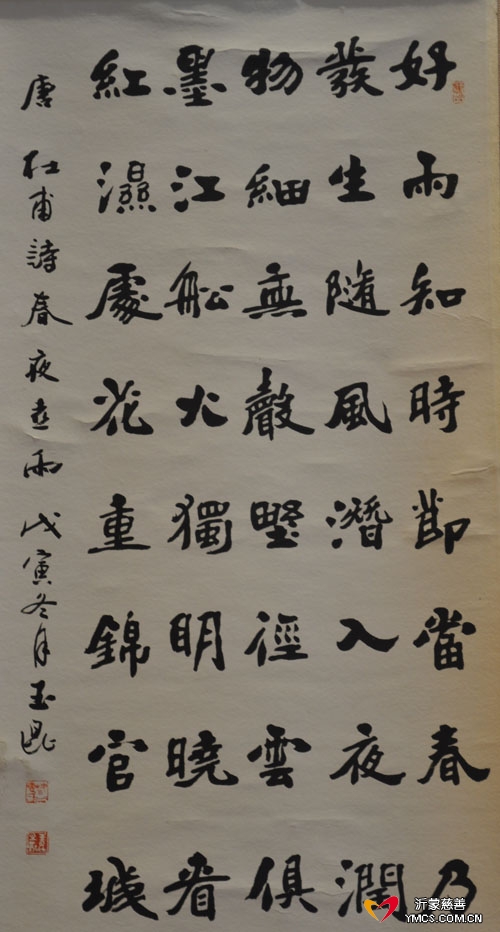 好雨知時節當春乃
發生隨風潛入夜潤
物細無聲野徑雲俱
墨江船火獨明曉看
紅濕處花重錦官城
唐 杜甫詩春夜喜雨 戊寅冬月玉
沂蒙慈善
YMCS.COM.CN